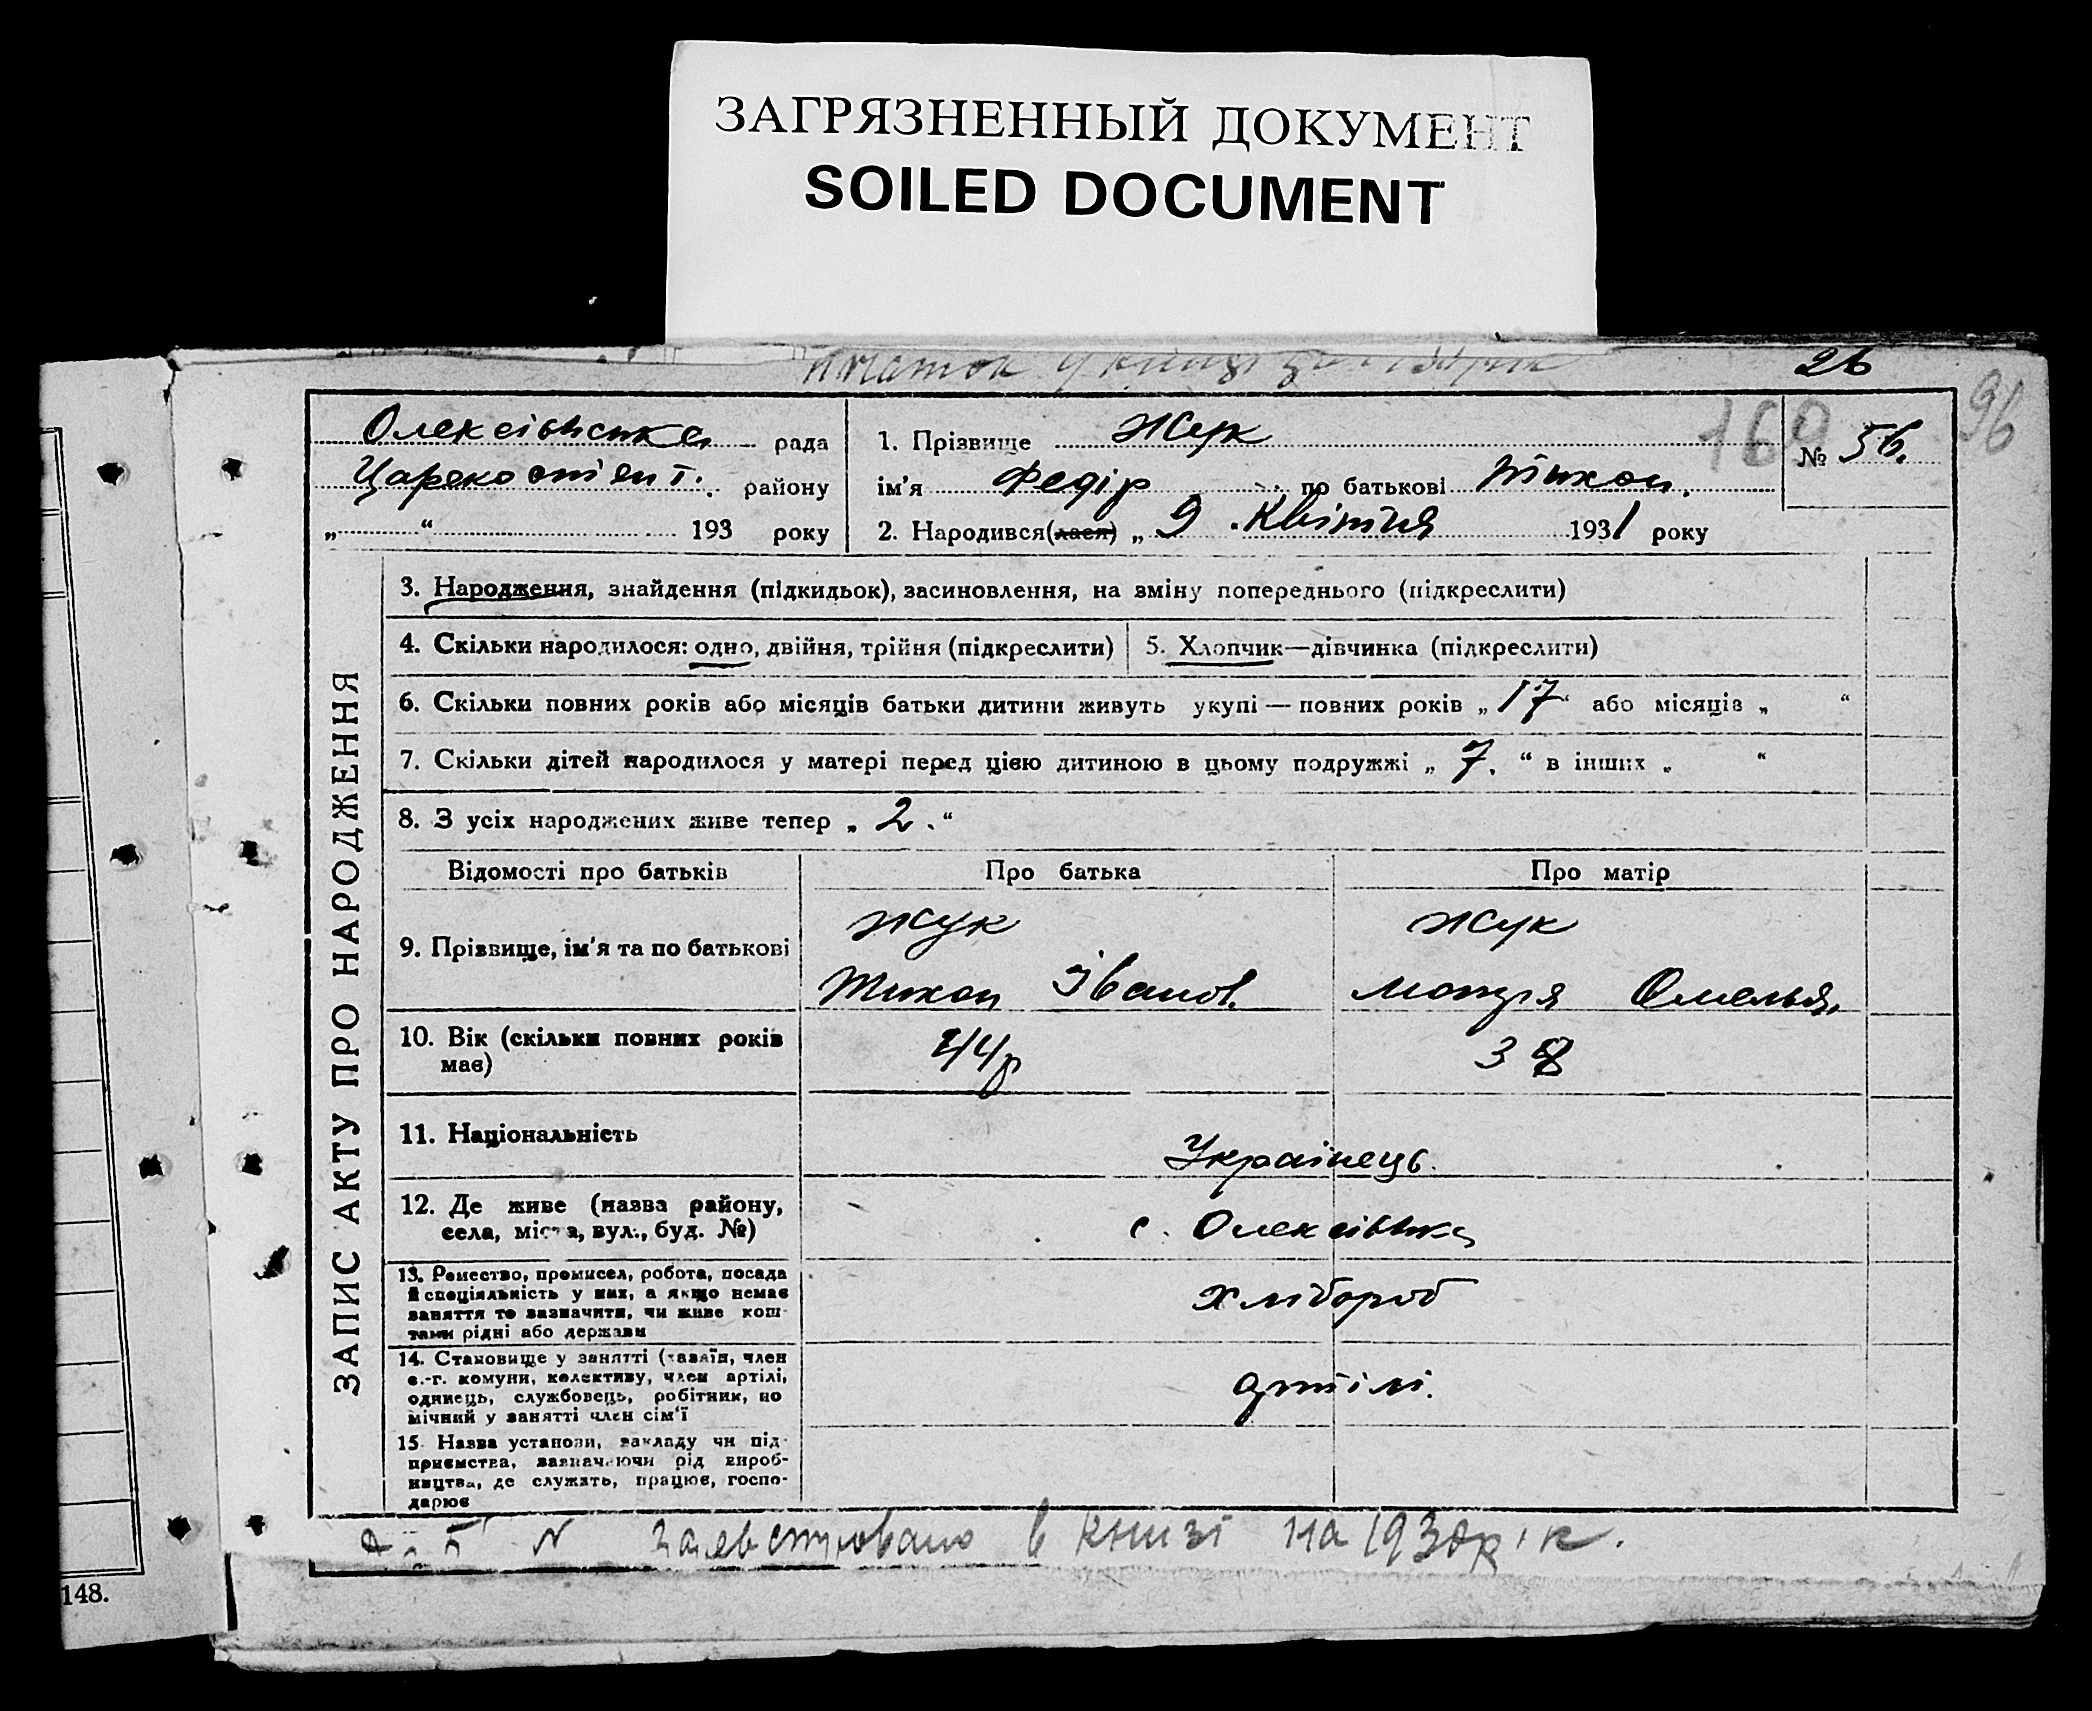 ЗАГРЯЗНЕННЫЙ ДОКУМЕНТ
SOILED DOCUMENT
26
96
169
Олексіївська рада
району
„ “ 193 року
1. Прізвище Жук
ім'я Федір по батькові Тихон.
2. Народився(лася) „ 9 Квітня 1931 року
№ 56.
ЗАПИС АКТУ ПРО НАРОДЖЕННЯ
3. Народження, знайдення (підкидьок), засиновлення, на зміну попереднього (підкреслити)
4. Скільки народилося: одно, двійня, трійня (підкреслити)
5. Хлопчик—дівчинка (підкреслити)
6. Скільки повних років або місяців батьки дитини живуть укупі — повних років „ 17 “ або місяців „ “
7. Скільки дітей народилося у матері перед цією дитиною в цьому подружжі „ 7. “ в інших „ “
8. З усіх народжених живе тепер „ 2. “
Відомості про батьків Про батька Про матір
9. Прізвище, ім'я та по батькові
Жук
Тихон Іванов.
Жук
Омелья.
10. Вік (скільки повних років
має)
44р
38
11. Національність
Українець.
12. Де живе (назва району,
села, міста, вул., буд. №)
с. Олексіївка
13. Ремество, промисел, робота, посада
й спеціяльність у них, а якщо немає
заняття то зазначити, чи живе кош-
тами рідні або держави
хлібороб
14. Становище у занятті (хазяїн, член
с.-г. комуни, колективу, член артілі,
одинець, службовець, робітник, по
мічний у занятті член сім'ї
артілі.
15. Назва установи, закладу чи під-
приємства, зазначаючи рід вироб-
ництва, де служить, працює, госпо-
дарює
в книзі на 1930 рік.
148.